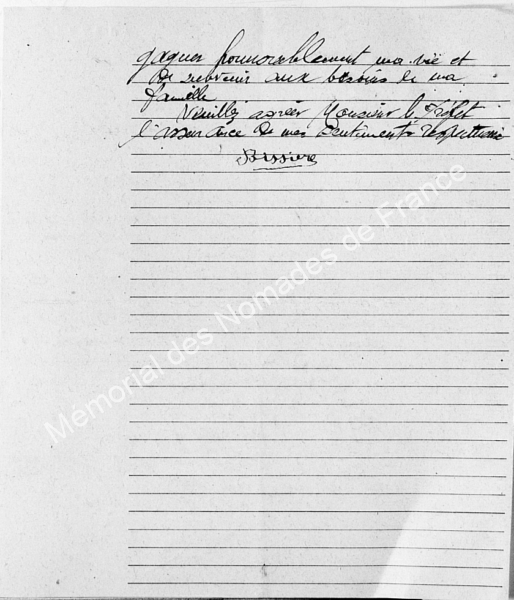 gagner honnorablement ma vie et
de subvenir aux besoins de ma
famille
Veuillez agréer Monsieur le Préfet
l'assurance de mes sentiments respectueux
Bissiere
Mémorial des Nomades de France